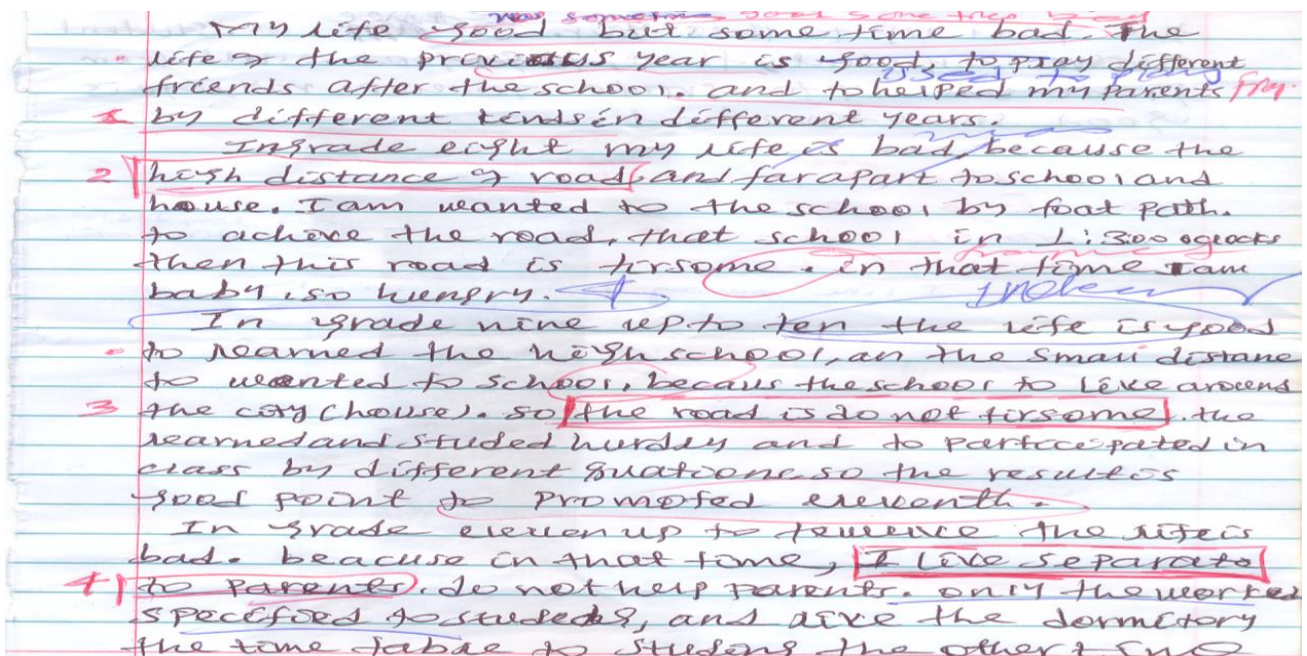 was sometimes good some times bad
My life good but some time bad. The
life of the previous year is good, to pray different
is used to play
friends after the school. and to helped my parents fry.
1 by different kinds in different years.
In grade eight my life is bad, because the
2 high distance of road and far apart to school and
house. I am wanted to the school by foat path.
to acheve the road, that school in 1:300 oglocks
then this road is tirsome. in that time I am
baby. so hungry.
In grade nine up to ten the life is good
to rearned the high school, an the small distane
to wanted to school, becaus the school to live around
3 the city (house). so the road is do not tirsome. the
rearned and studed hurdly and to particepated in
class by different quations. so the result is
good point to promoted eleventh.
In grade eleven up to tewelve the life is
bad. beacuse in that time, I live separate
4 to parents. do not help parents. only the worked
specified to studeds, and live the dormitory
the time table to studeng the other